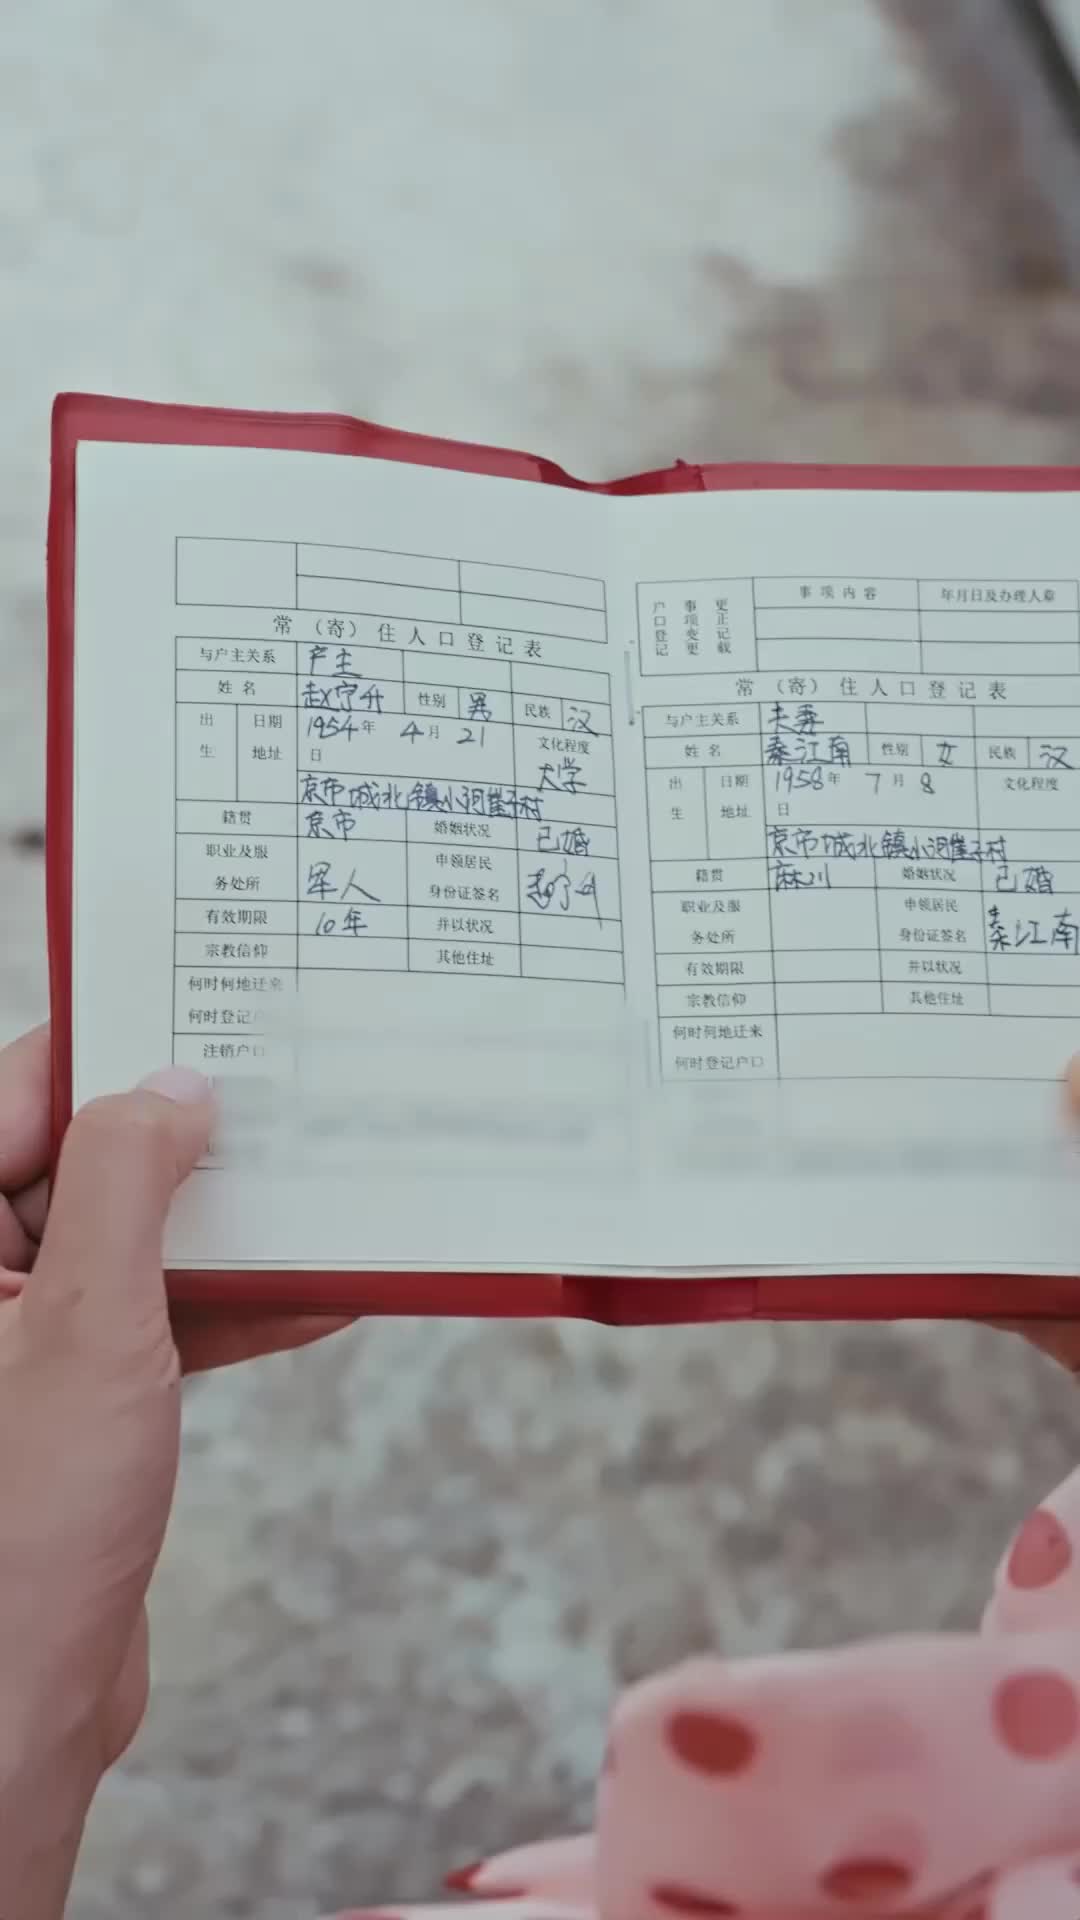 常（寄）住人口登记表
与户主关系 户主
姓名 赵宁升 性别 男 民族 汉
出生 日期 1954年 4月 21日 文化程度 大学
地址 京市城北镇小河崖子村
籍贯 京市 婚姻状况 已婚
职业及服务处所 军人 申领居民身份证签名 赵宁升
有效期限 10年 并以状况
宗教信仰 其他住址
何时何地迁来
何时登记户
注销户口
户口登记事项变更更正记载 事项内容 年月日及办理人章
常（寄）住人口登记表
与户主关系 夫妻
姓名 秦江南 性别 女 民族 汉
出生 日期 1958年 7月 8日 文化程度
地址 京市城北镇小河崖子村
籍贯 麻川 婚姻状况 已婚
职业及服务处所 申领居民身份证签名 秦江南
有效期限 并以状况
宗教信仰 其他住址
何时何地迁来
何时登记户口